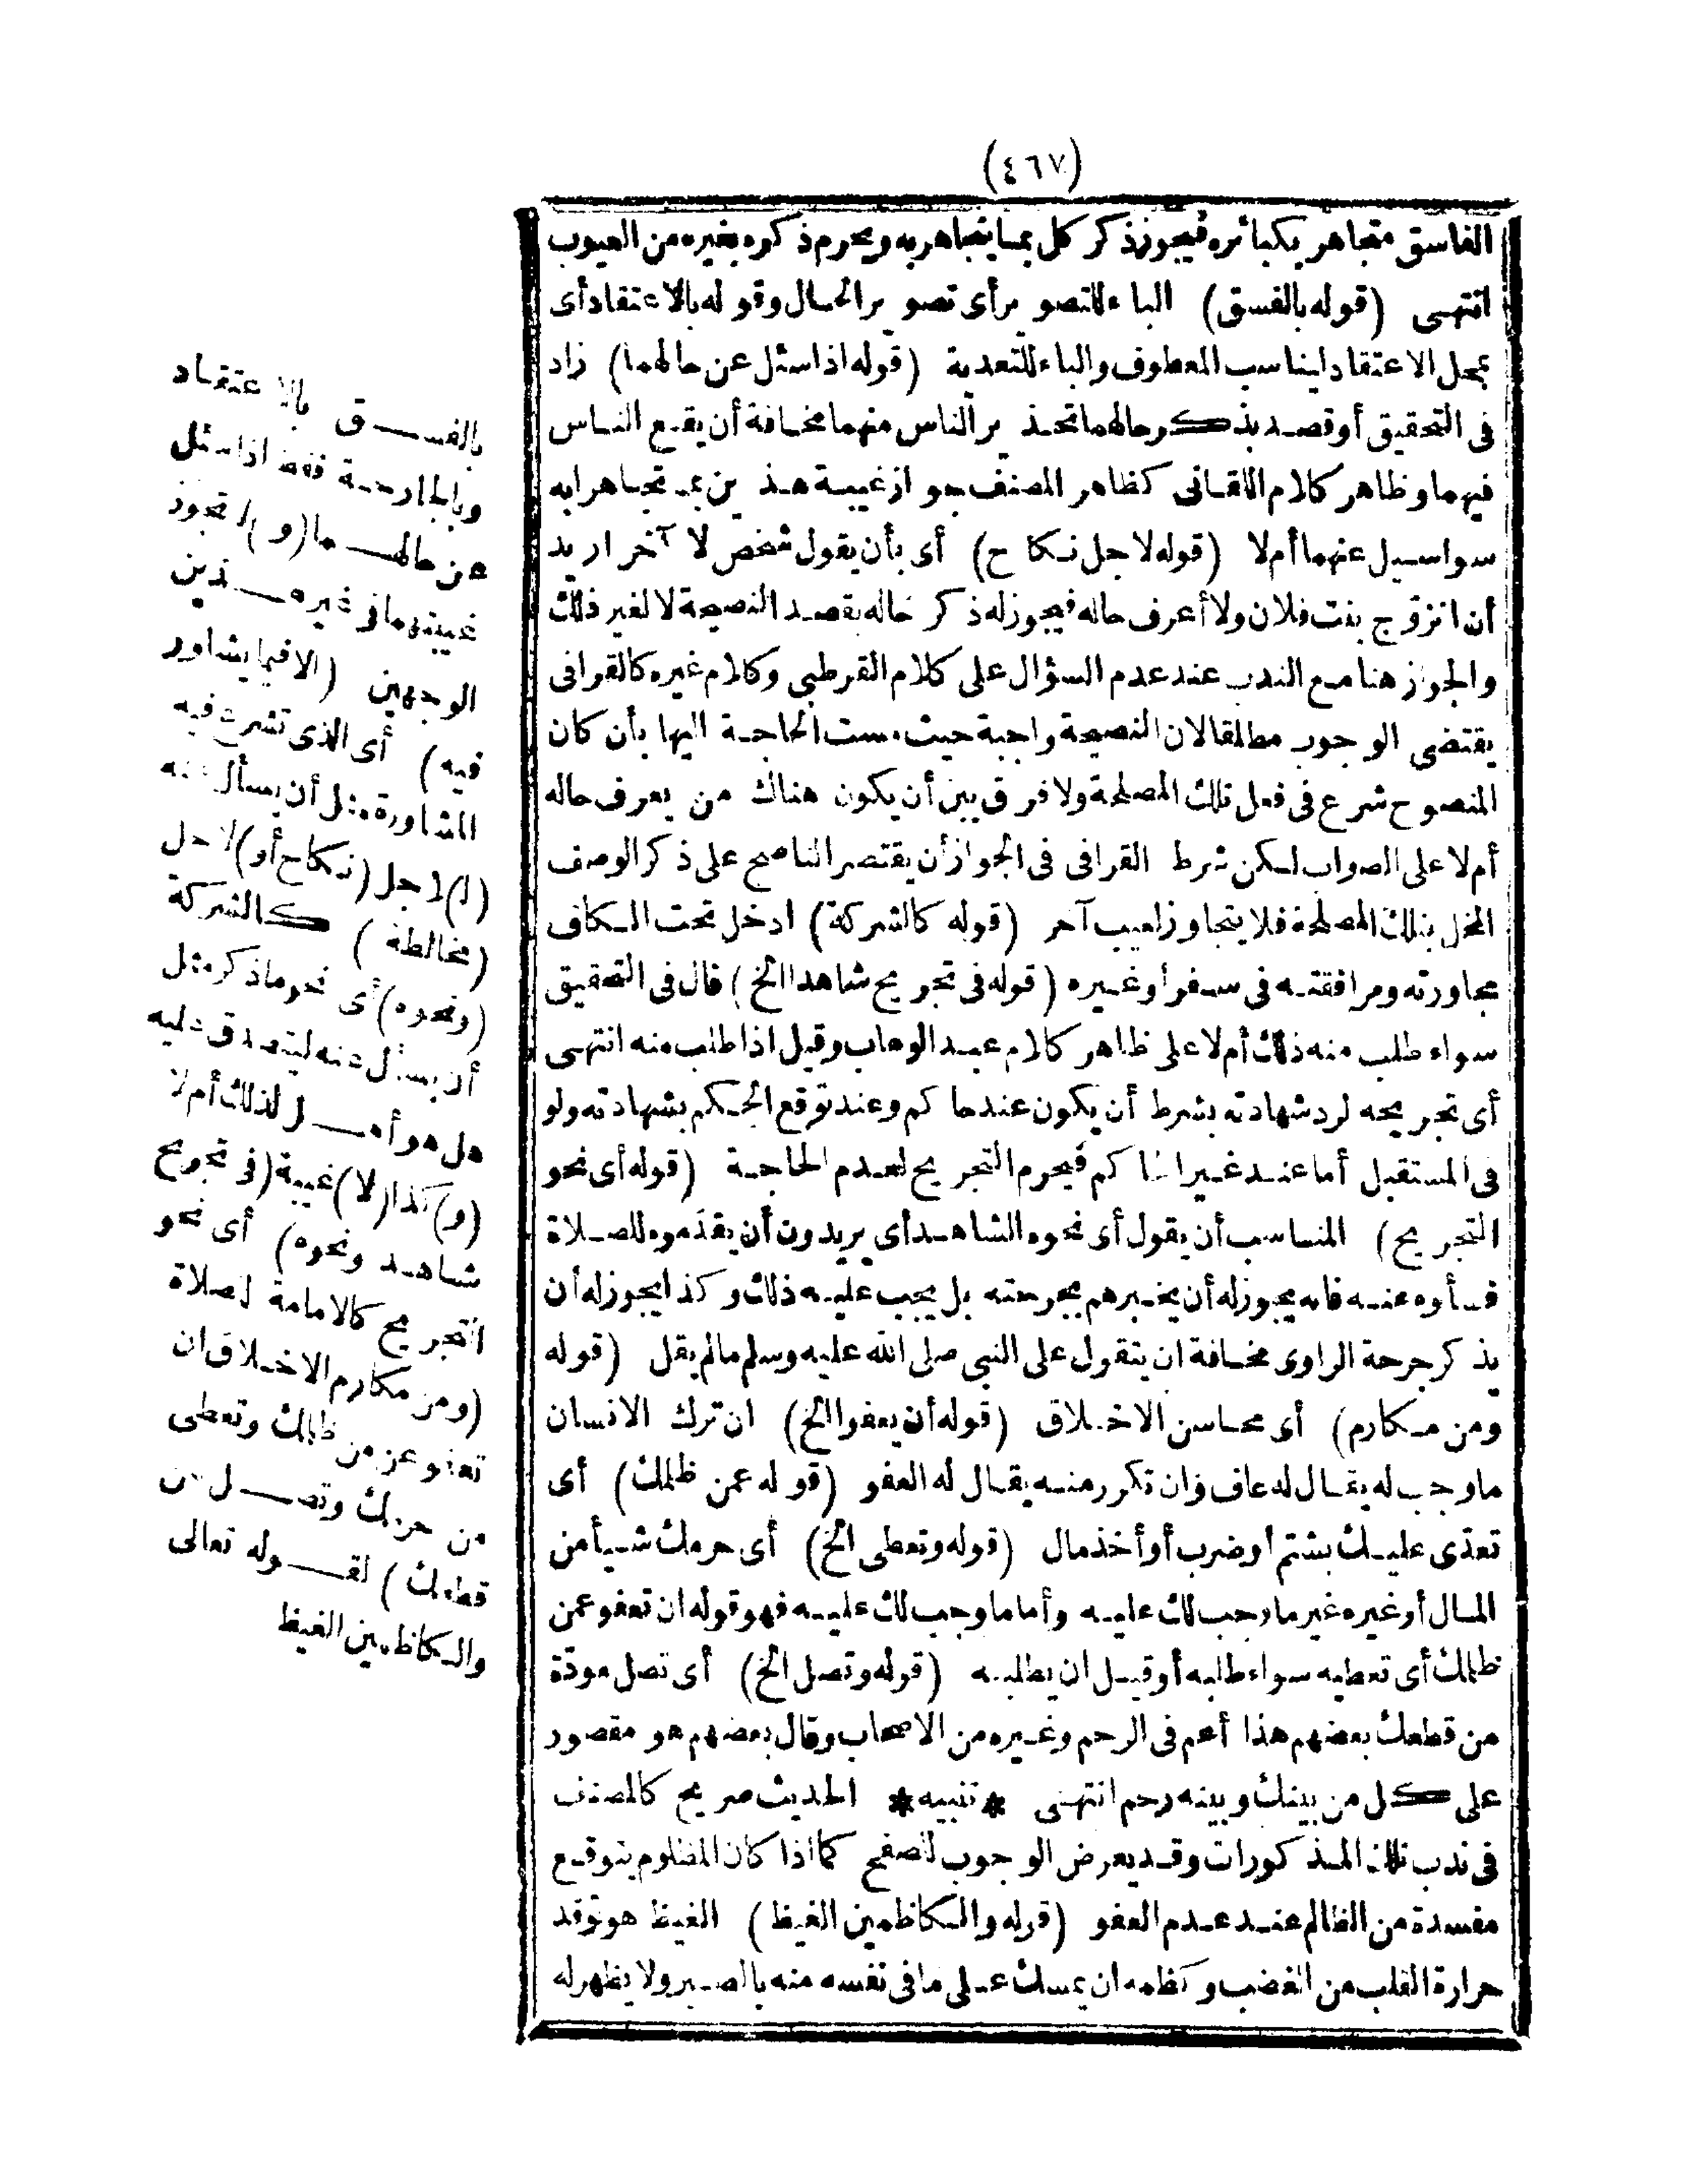 (٤٦٧)
الفاسق متجاهر بكبائره فيجوز ذكر كل بما يتجاهر به ويحرم ذكره بغيره من العيوب
انتهى (قوله بالفسق) الباء للتصوير أى تصوير الحال وقوله بالاعتقاد أى
بمحل الاعتقاد ليناسب المعطوف والباء للتعدية (قوله اذا سئل عن حالهما) زاد
فى التحقيق أو قصد بذكر حالهما تحذير الناس منهما مخافة أن يقع الناس
فيهما وظاهر كلام اللقانى كظاهر المصنف جواز غيبة هذين بما تجاهرا به
سوا سيل عنهما أم لا (قوله لاجل نكاح) أى بأن يقول شخص لآخر اريد
أن اتزوّج بنت فلان ولا أعرف حاله فيجوز له ذكر حاله بقصد النصيحة لا لغير ذلك
والجواز هنا مع الندب عند عدم السؤال على كلام القرطبى وكلام غيره كالقرافى
يقتضى الوجوب مطلقا لان النصيحة واجبة حيث مست الحاجة اليها بأن كان
المنصوح شرع فى فعل تلك المصلحة ولا فرق بين أن يكون هناك من يعرف حاله
أم لا على الصواب لكن شرط القرافى فى الجواز أن يقتصر الناصح على ذكر الوصف
المخل بتلك المصلحة فلا يتجاوز لعيب آخر (قوله كالشركة) ادخل تحت الكاف
مجاورته ومرافقته فى سفر أو غيره (قوله فى تجريح شاهد الخ) قال فى التحقيق
سواء طلب منه ذلك أم لا على ظاهر كلام عبد الوهاب وقيل اذا طلب منه انتهى
أى تجريحه لرد شهادته بشرط أن يكون عند حاكم وعند توقع الحكم بشهادته ولو
فى المستقبل أما عند غير الحاكم فيحرم التجريح لعدم الحاجة (قوله أى نحو
التجريح) المناسب أن يقول أى نحوه الشاهد أى يريدون أن يقدّموه للصلاة
فسألوه عنه فانه يجوز له أن يخبرهم بجرحته بل يجب عليه ذلك وكذا يجوز له أن
يذكر جرحة الراوى مخافة ان يتقول على النبى صلى الله عليه وسلم ما لم يقل (قوله
ومن مكارم) أى محاسن الاخلاق (قوله أن يعفوا الخ) ان ترك الانسان
ما وجب له يقال له عاف وان تكرر منه يقال له العفو (قوله عمن ظلمك) أى
تعدّى عليك بشتم أو ضرب أو أخذ مال (قوله وتعطى الخ) أى حرمك شيأ من
المال أو غيره غير ما وجب لك عليه وأما ما وجب لك عليه فهو قوله ان تعفو عمن
ظلمك أى تعطيه سواء طلبه أو قبل ان يطلبه (قوله وتصل الخ) أى تصل مودّة
من قطعك بعضهم هذا أعم فى الرحم وغيره من الاصحاب وقال بعضهم هو مقصور
على كل من بينك وبينه رحم انتهى * تنبيه * الحديث صريح كالمصنف
فى ندب تلك المذكورات وقد يعرض الوجوب للصفح كما اذا كان المظلوم يتوقع
مفسدة من الظالم عند عدم العفو (قوله والكاظمين الغيظ) الغيظ هو توقد
حرارة القلب من الغضب وكظمه ان يمسك على ما فى نفسه منه بالصبر ولا يظهر له
بالفسق بالاعتقاد
وبالجارحة فقط اذا سئل
عن حالهما (و) لا تجوز
غيبتهما فى غير هذين
الوجهين (الا فيما يشاور
فيه) أى الذى تشرع فيه
المشاورة مثل أن يسأل عنه
(ا) لاجل (نكاح أو) لاجل
(مخالطة) كالشركة
(ونحوه) أى نحو ما ذكر مثل
أن يسأل عنه ليتصدق عليه
هل هو أهل لذلك أم لا
(و) كذا (لا) غيبة (فى تجريح
شاهد ونحوه) أى نحو
التجريح كالامامة لصلاة
(ومن مكارم الاخلاق ان
تعفو عن من ظلمك وتعطى
من حرمك وتصل من
قطعك) لقوله تعالى
والكاظمين الغيظ